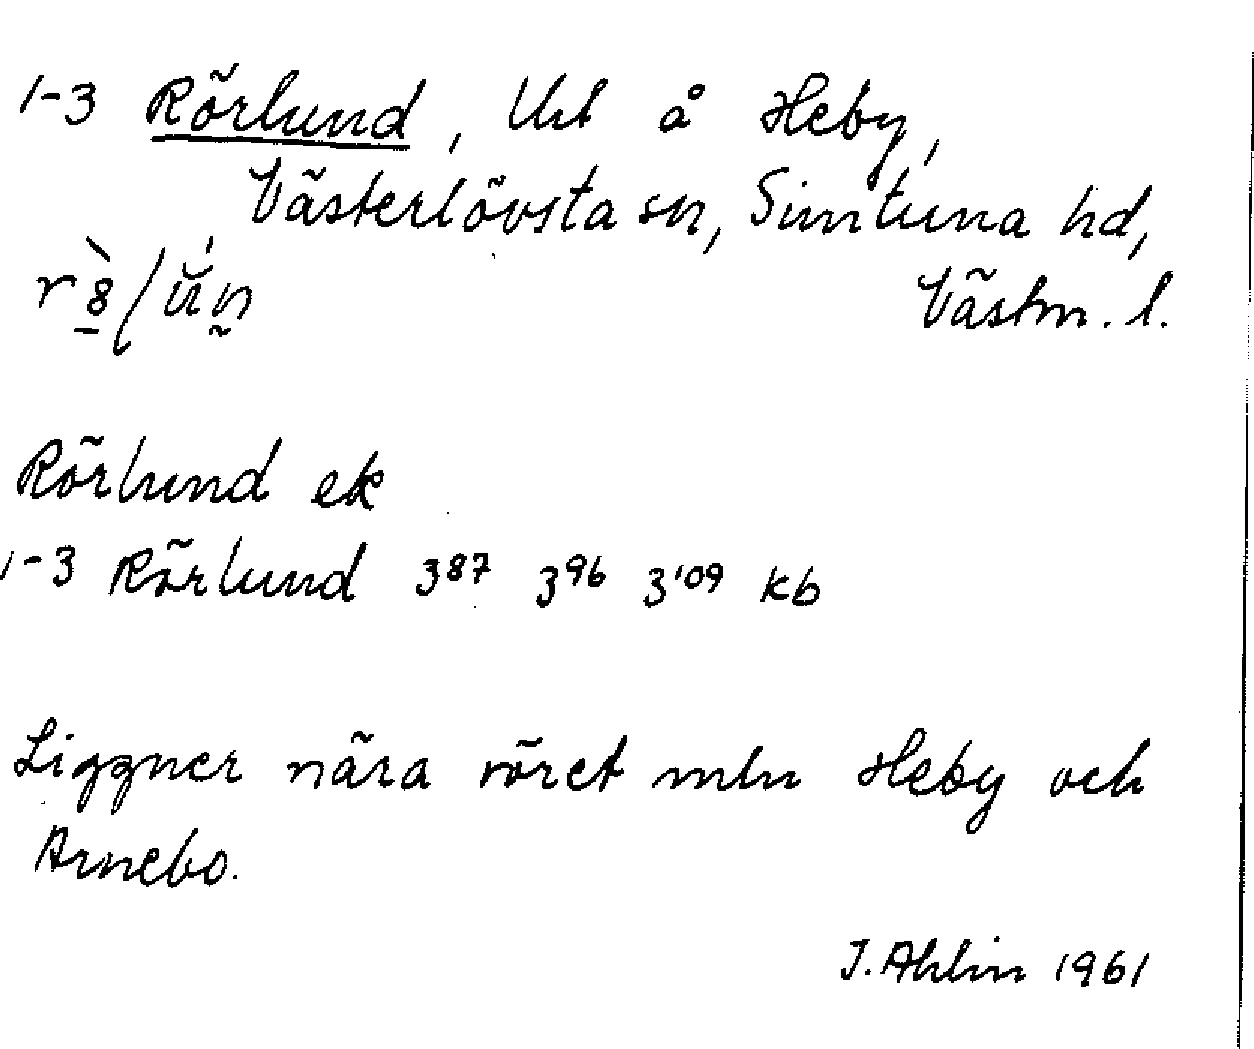 1-3 Rörlund, Utl å Heby,
Västerlövsta sn, Simtuna hd,
Västm. l.
Rörlund ek
1-3 Rörlund 3⁸⁷ 3⁹⁶ 3'⁰⁹ kb
Liggner nära röret mln Heby och
Arnebo.
J. Ahlin 1961